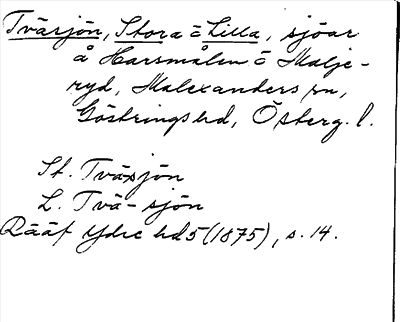 Tväsjön, Stora o Lilla, sjöar
å Harsmålen o Malje-
ryd, Malexanders sn,
Göstrings hd, Österg. l.
St. Tväsjön
L. Tvä-sjön
Rääf Ydre hd 5 (1875), s. 14.